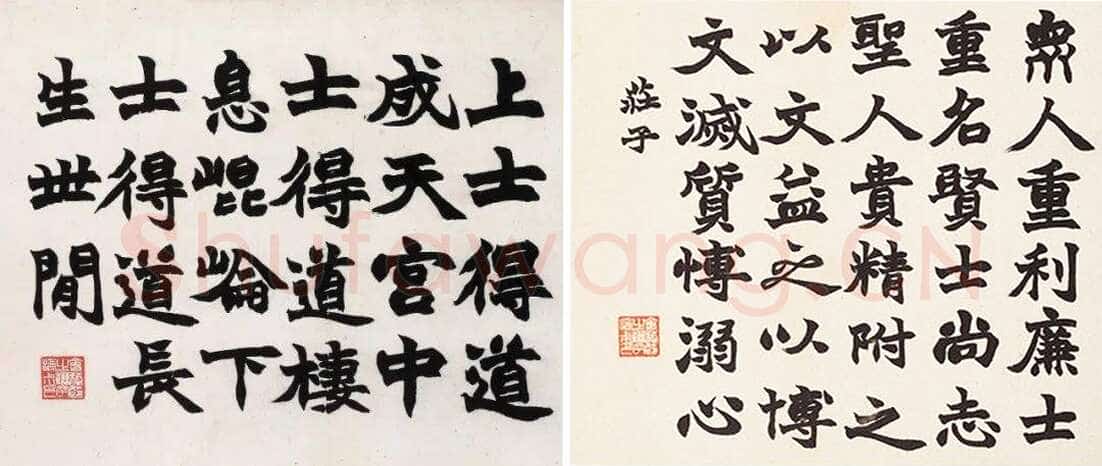 上士得道
成天宮中
士得道棲
息崐崘下
士得道長
生世閒
眾人重利廉士
重名賢士尚志
聖人貴精附之
以文益之以博
文滅質博溺心
莊子
Shufawang.CN